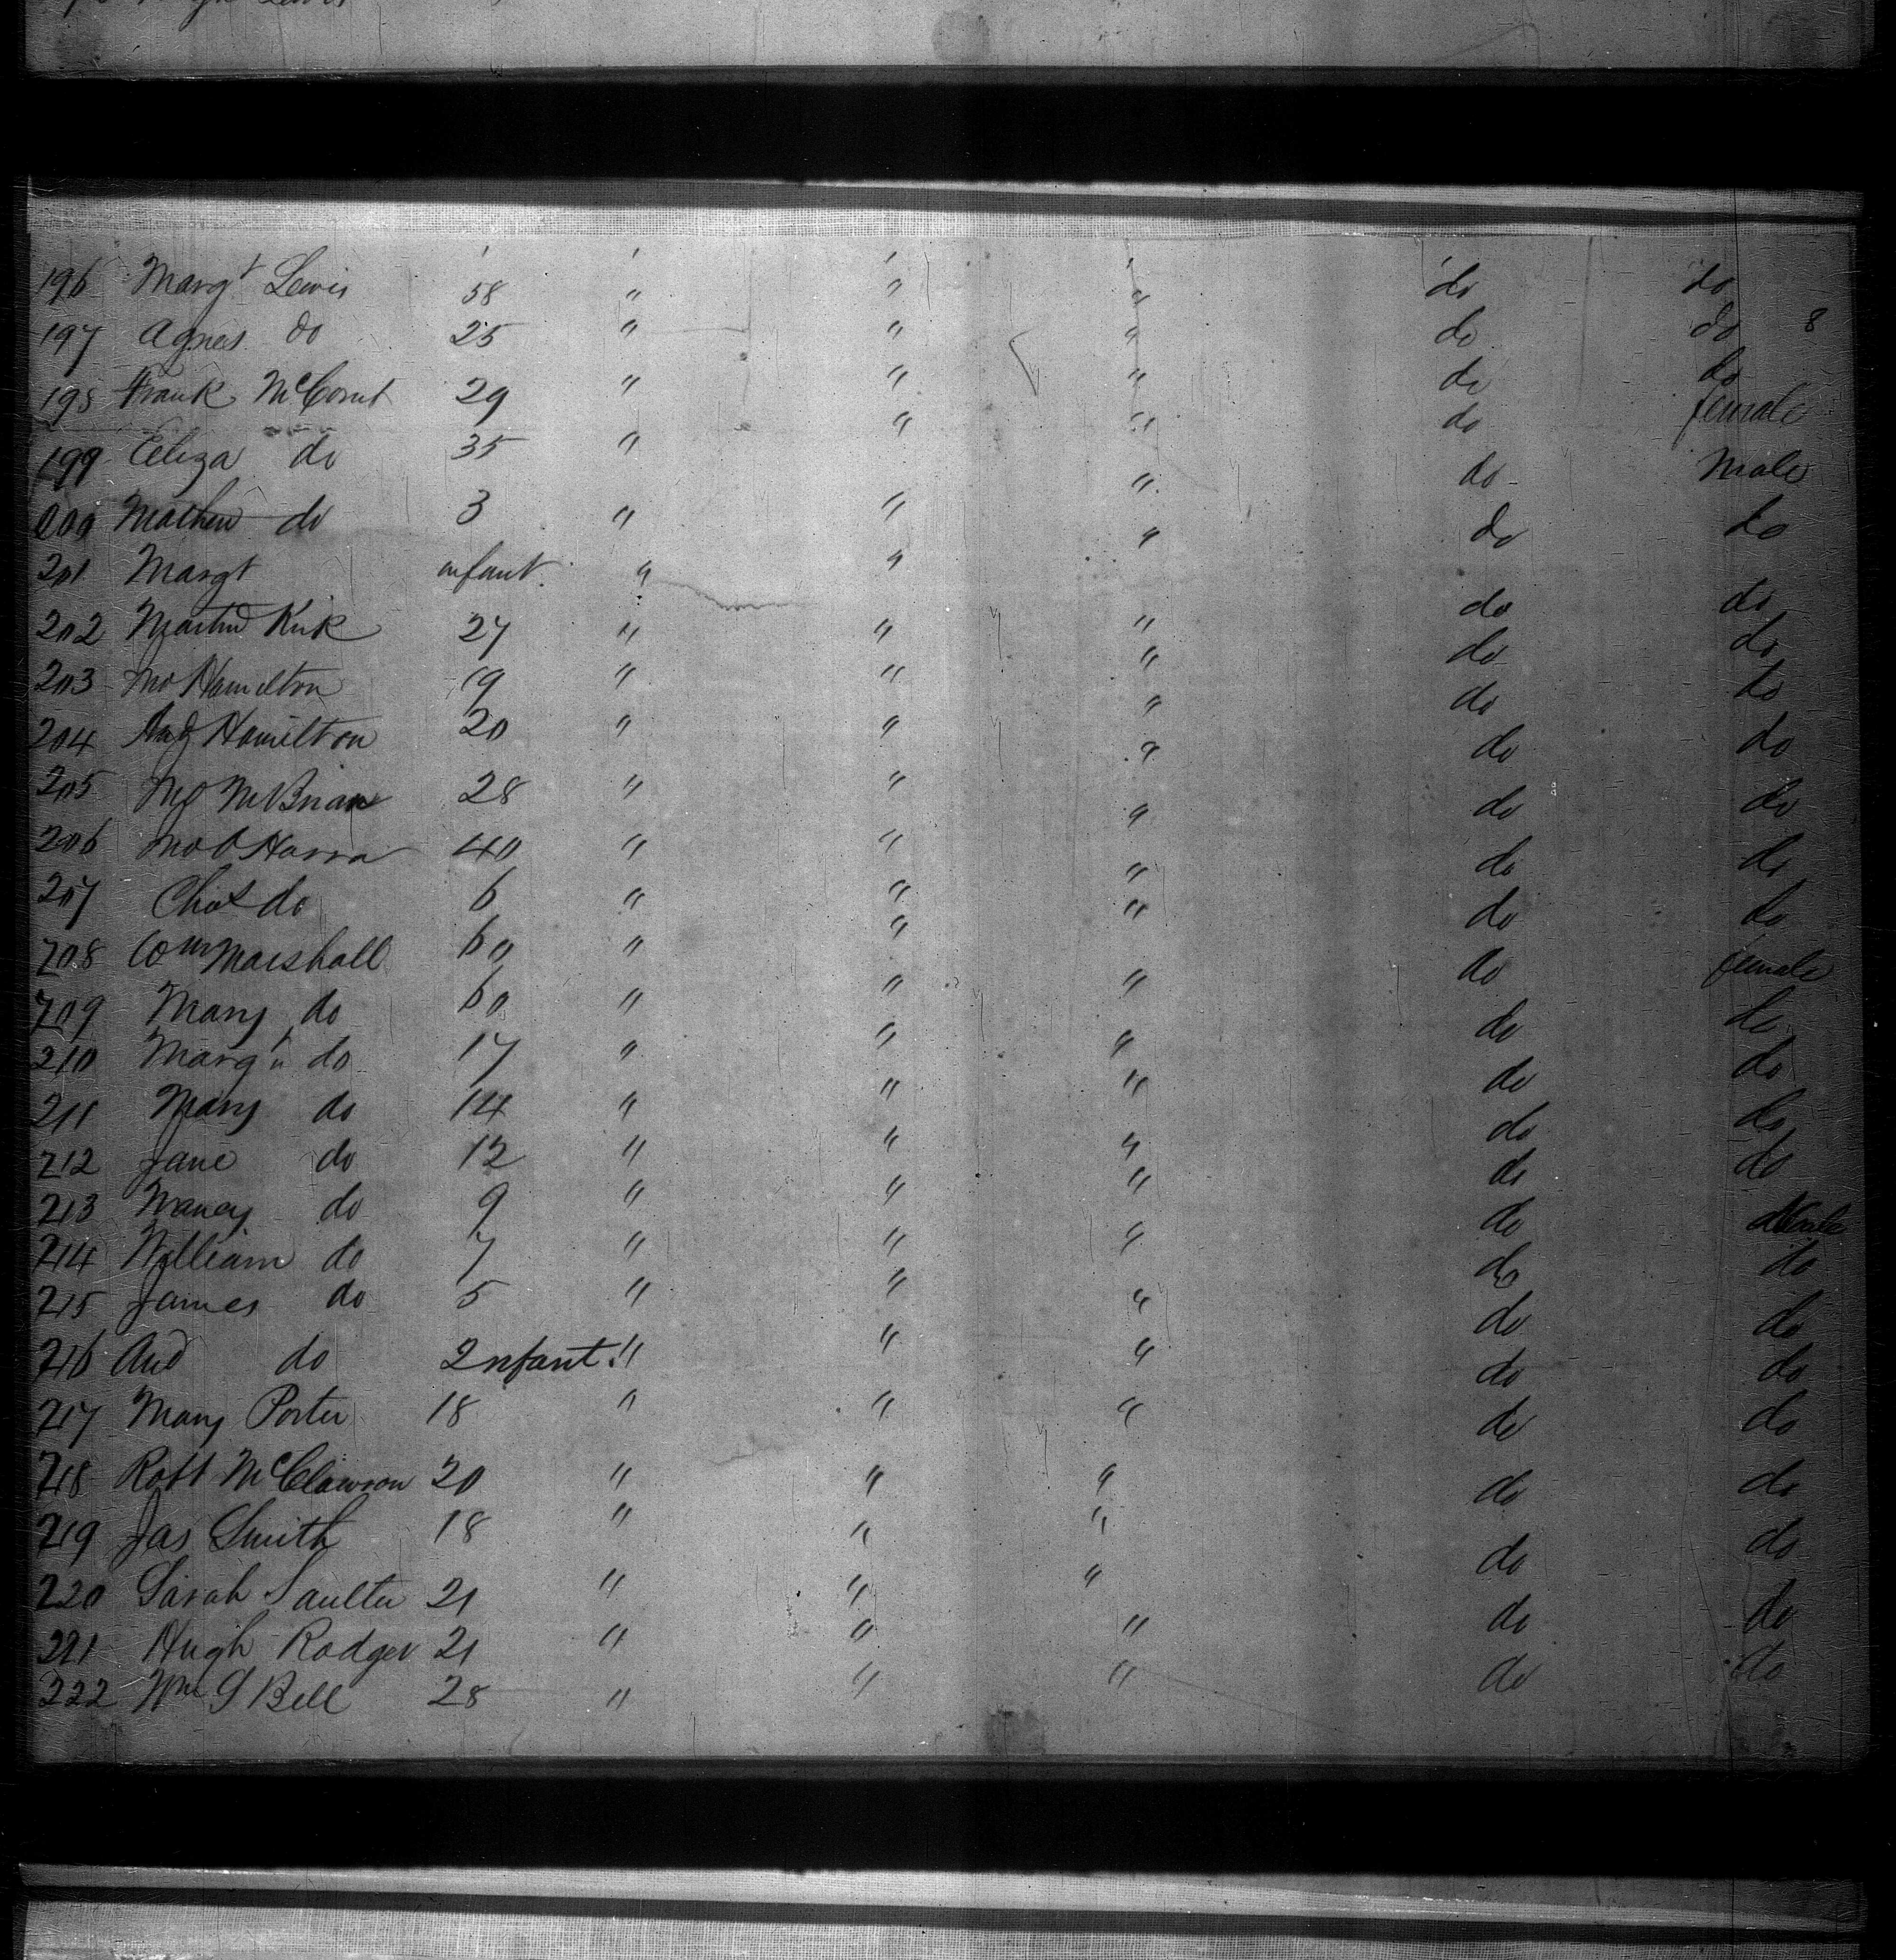 196 Margt Lewis 58 " " " do do
197 Agnes do 25 " " " do do 8
198 Frank McComb 29 " " " do do
199 Eliza do 35 " " " do female
200 Mathew do 3 " " " do Male
201 Margt infant " " " do do
202 Martin Kirk 27 " " " do do
203 Jno Hamilton 19 " " " do do
204 And Hamilton 20 " " " do do
205 McBrian 28 " " " do do
206 Jno O Harra 40 " " " do do
207 Chas do 6 " " " do do
208 Wm Marshall 60 " " " do do
209 Mary do 60 " " " do female
210 Margt do 17 " " " do do
211 Mary do 14 " " " do do
212 Jane do 12 " " " do do
213 Nancy do 9 " " " do do
214 William do 7 " " " do Male
215 James do 5 " " " do do
216 And do Infant " " " do do
217 Mary Porter 18 " " " do do
218 Robt McClawson 20 " " " do do
219 Jas Smith 18 " " " do do
220 Sarah Saulter 21 " " " do do
221 Hugh Rodger 21 " " " do do
222 Wm G Bell 28 " " " do do